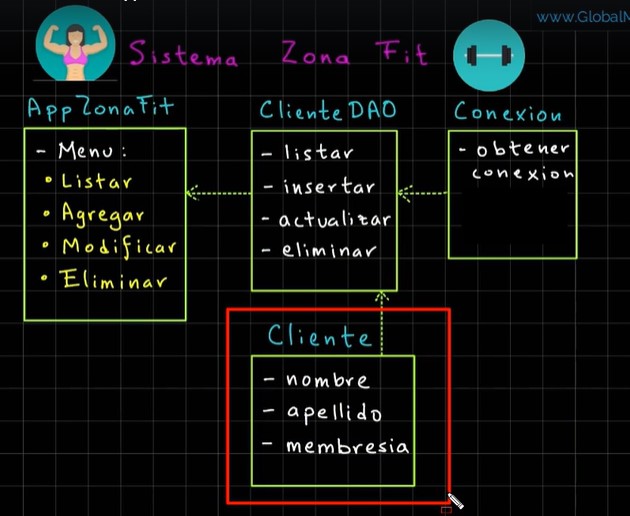 www.GlobalM
Sistema Zona Fit
AppZonaFit
- Menu:
• Listar
• Agregar
• Modificar
• Eliminar
ClienteDAO
- listar
- insertar
- actualizar
- eliminar
Conexion
- obtener
conexion
Cliente
- nombre
- apellido
- membresia